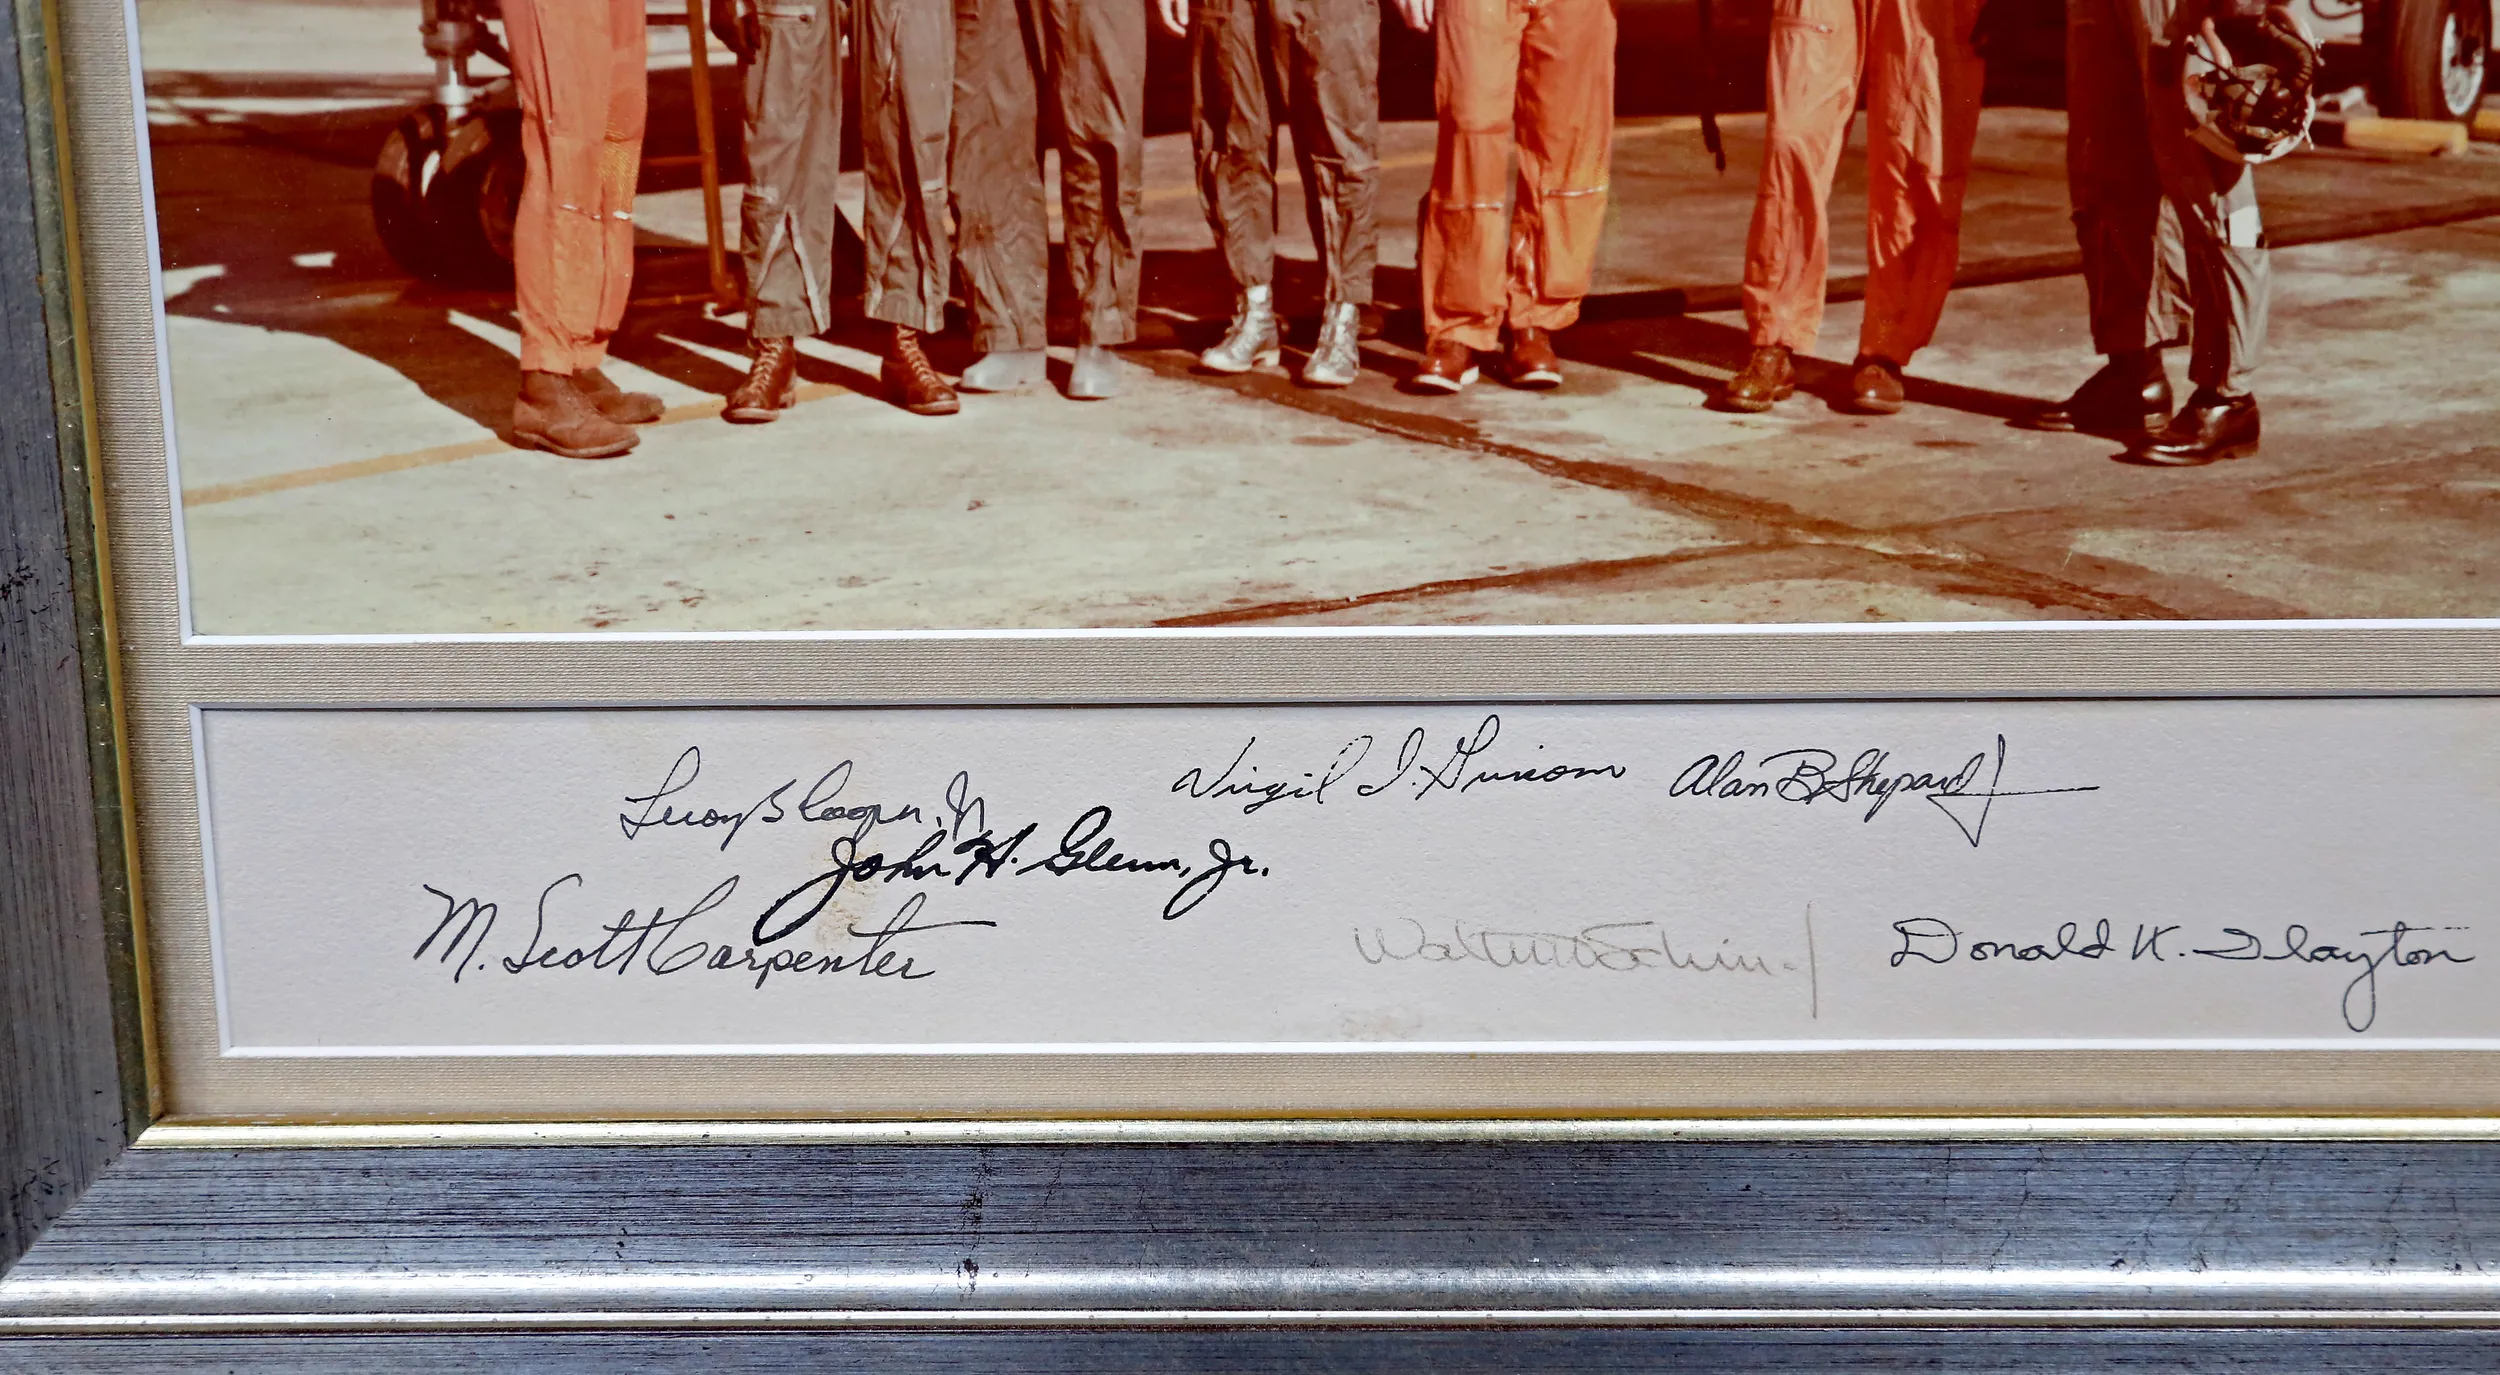 Virgil I. Grissom Alan B. Shepard Jr
Leroy G Cooper, Jr
John H. Glenn, Jr.
M. Scott Carpenter
Walter M Schirra Jr Donald K. Slayton